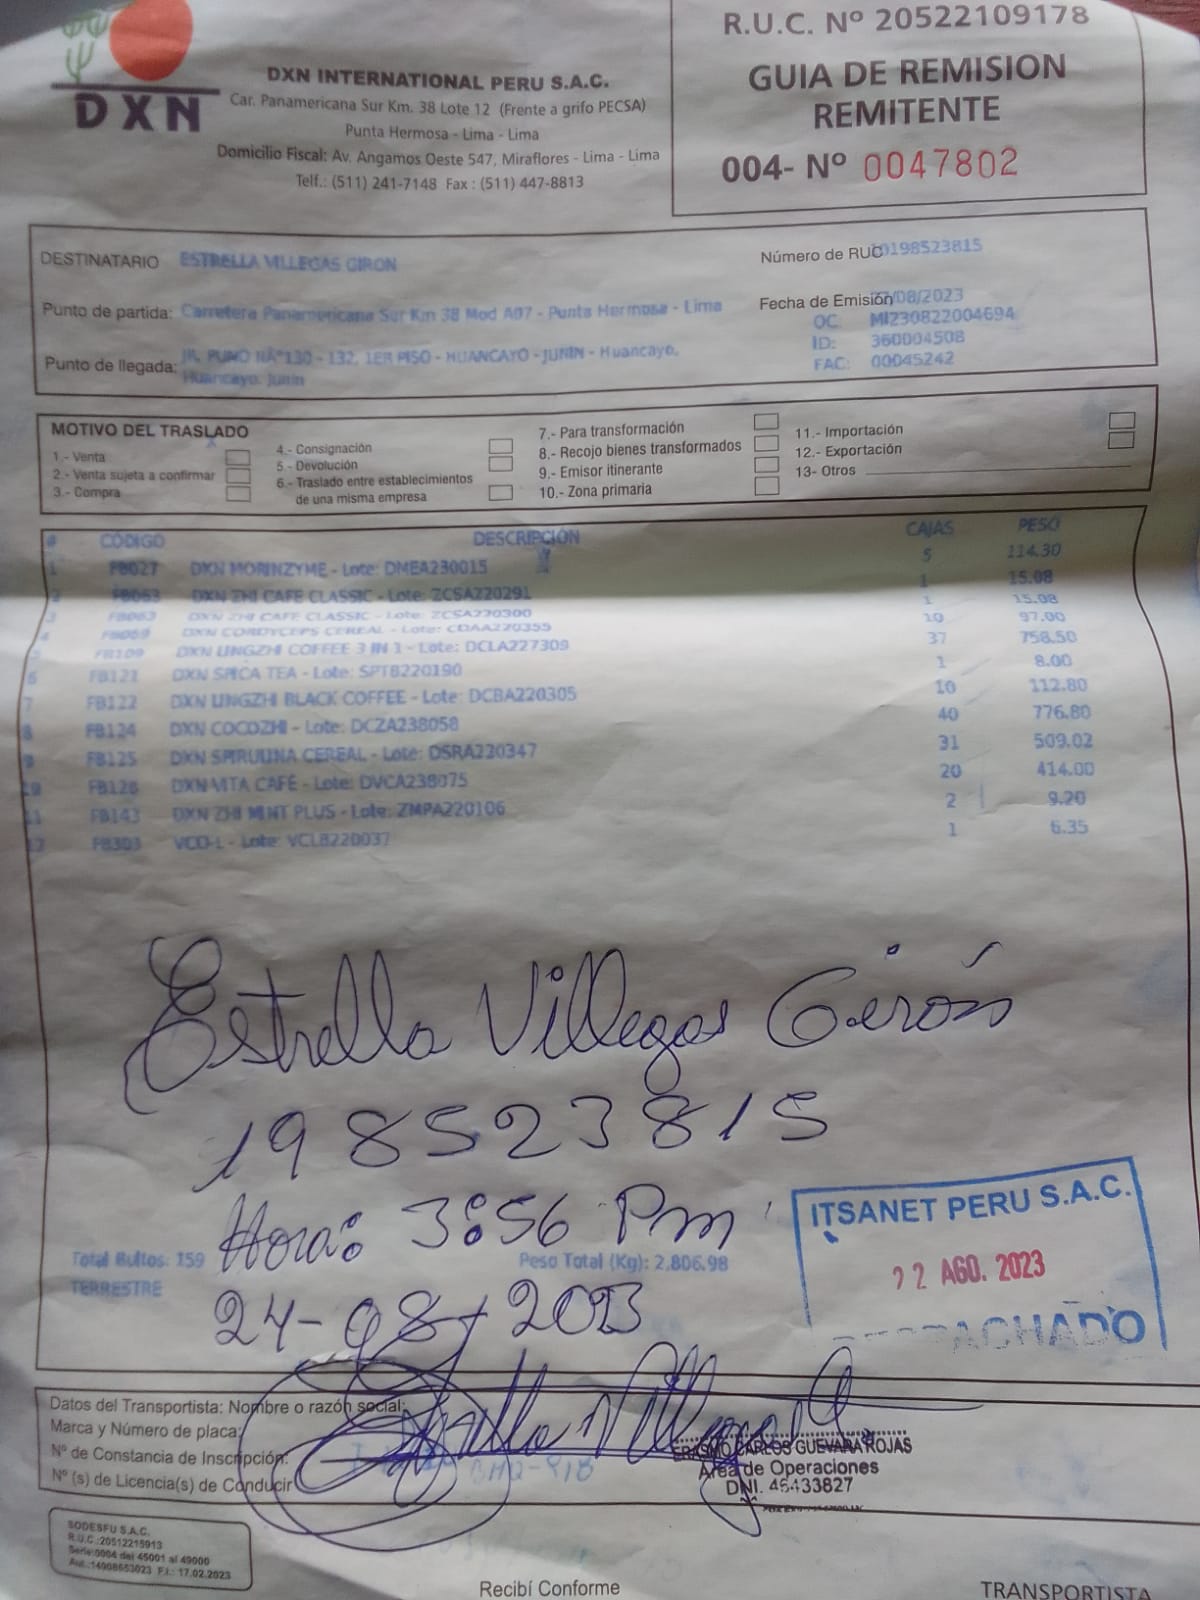 DXN
DXN INTERNATIONAL PERU S.A.C.
Car. Panamericana Sur Km. 38 Lote 12 (Frente a grifo PECSA)
Punta Hermosa - Lima - Lima
Domicilio Fiscal: Av. Angamos Oeste 547, Miraflores - Lima - Lima
Telf.: (511) 241-7148 Fax : (511) 447-8813
R.U.C. Nº 20522109178
GUIA DE REMISION
REMITENTE
004- Nº 0047802
DESTINATARIO ESTRELLA VILLEGAS GIRON
Número de RUC 0198523815
Punto de partida: Carretera Panamericana Sur Km 38 Mod A07 - Punta Hermosa - Lima
Fecha de Emisión /08/2023
OC: MI230822004694
ID: 360004508
FAC: 00045242
Punto de llegada: JR. PUNO NÂº130 - 132, 1ER PISO - HUANCAYO - JUNIN - Huancayo,
Huancayo, Junin
MOTIVO DEL TRASLADO
1.- Venta
2.- Venta sujeta a confirmar
3.- Compra
4.- Consignación
5.- Devolución
6.- Traslado entre establecimientos
de una misma empresa
7.- Para transformación
8.- Recojo bienes transformados
9.- Emisor itinerante
10.- Zona primaria
11.- Importación
12.- Exportación
13- Otros
# CODIGO DESCRIPCIÓN CAJAS PESO
1 FB027 DXN MORINZYME - Lote: DMEA230015 5 114.30
2 FB063 DXN ZHI CAFE CLASSIC - Lote: ZCSA220291 1 15.08
3 FB063 DXN ZHI CAFE CLASSIC - Lote: ZCSA220300 1 15.08
4 FB069 DXN CORDYCEPS CEREAL - Lote: CDAA220355 10 97.00
5 FB109 DXN LINGZHI COFFEE 3 IN 1 - Lote: DCLA227309 37 758.50
6 FB121 DXN SPICA TEA - Lote: SPTB220190 1 8.00
7 FB122 DXN LINGZHI BLACK COFFEE - Lote: DCBA220305 10 112.80
8 FB124 DXN COCOZHI - Lote: DCZA238058 40 776.80
9 FB125 DXN SPIRULINA CEREAL - Lote: DSRA220347 31 509.02
10 FB126 DXN VITA CAFE - Lote: DVCA238075 20 414.00
11 FB143 DXN ZHI MINT PLUS - Lote: ZMPA220106 2 9.20
12 FB303 VCO-L - Lote: VCLB220037 1 6.35
Estrella Villegas Girón
198523815
Hora: 3:56 Pm
Total Bultos: 159
Peso Total (Kg): 2,806.98
TERRESTRE
24-08-2023
ITSANET PERU S.A.C.
22 AGO. 2023
DESPACHADO
Datos del Transportista: Nombre o razón social:
Marca y Número de placa:
Nº de Constancia de Inscripción:
Nº (s) de Licencia(s) de Conducir
ERASMO CARLOS GUEVARA ROJAS
Área de Operaciones
DNI. 45433827
SODESFU S.A.C.
R.U.C.:20512215913
Serie:0004 del 45001 al 49000
Aut.:14908653023 F.I.: 17.02.2023
Recibí Conforme
TRANSPORTISTA